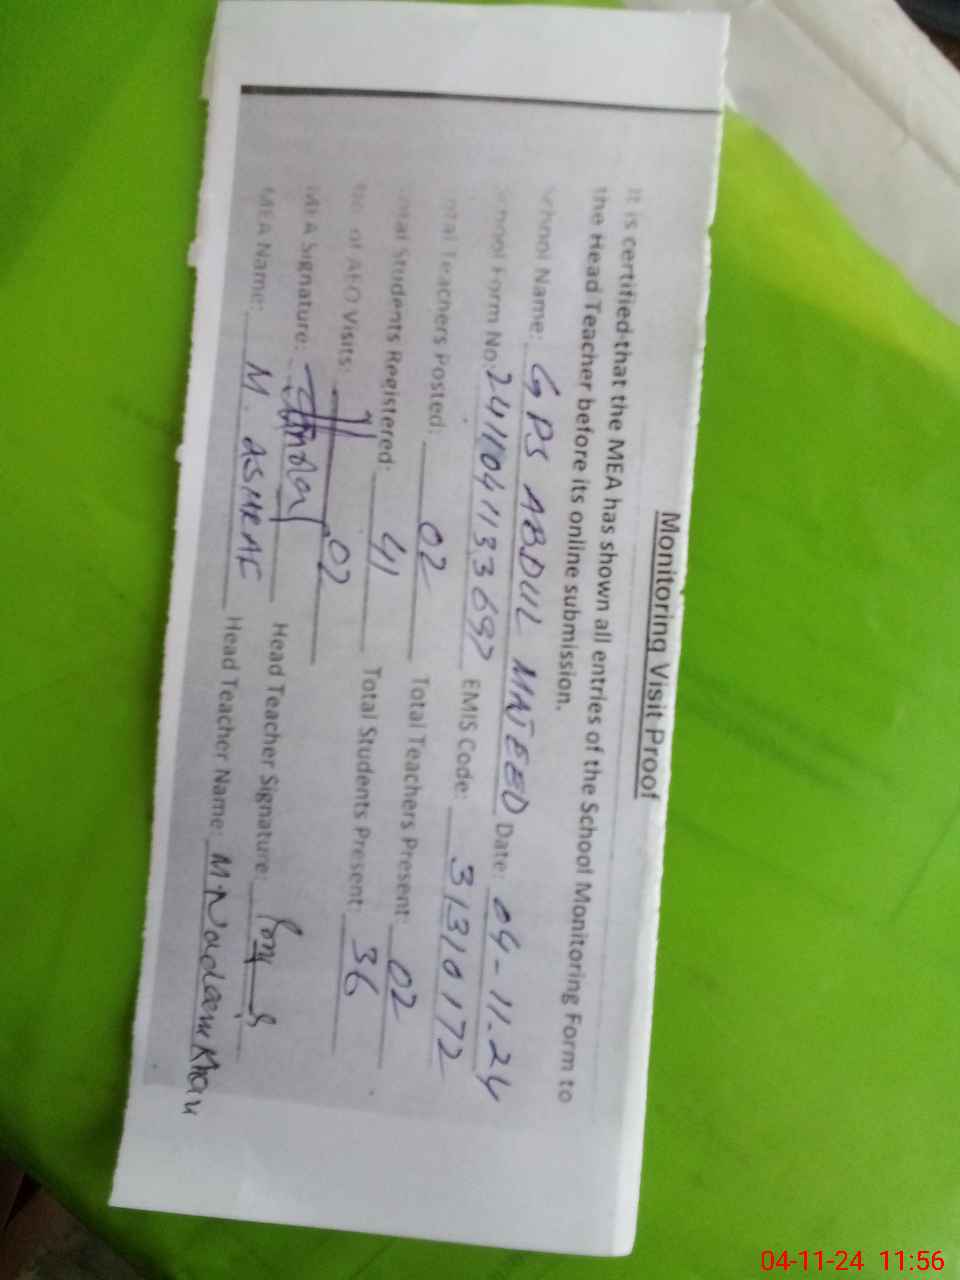 Monitoring Visit Proof
It is certified that the MEA has shown all entries of the School Monitoring Form to
the Head Teacher before its online submission.
School Name: GPS ABDUL MAJEED Date: 04-11-24
School Form No: 2411041133697 EMIS Code: 31310172
Total Teachers Posted: 02 Total Teachers Present: 02
Total Students Registered: 41 Total Students Present: 36
No. of AEO Visits: 02
MEA Signature: Head Teacher Signature:
MEA Name: M. ASHRAF Head Teacher Name: M. Nadeem Khan
04-11-24 11:56